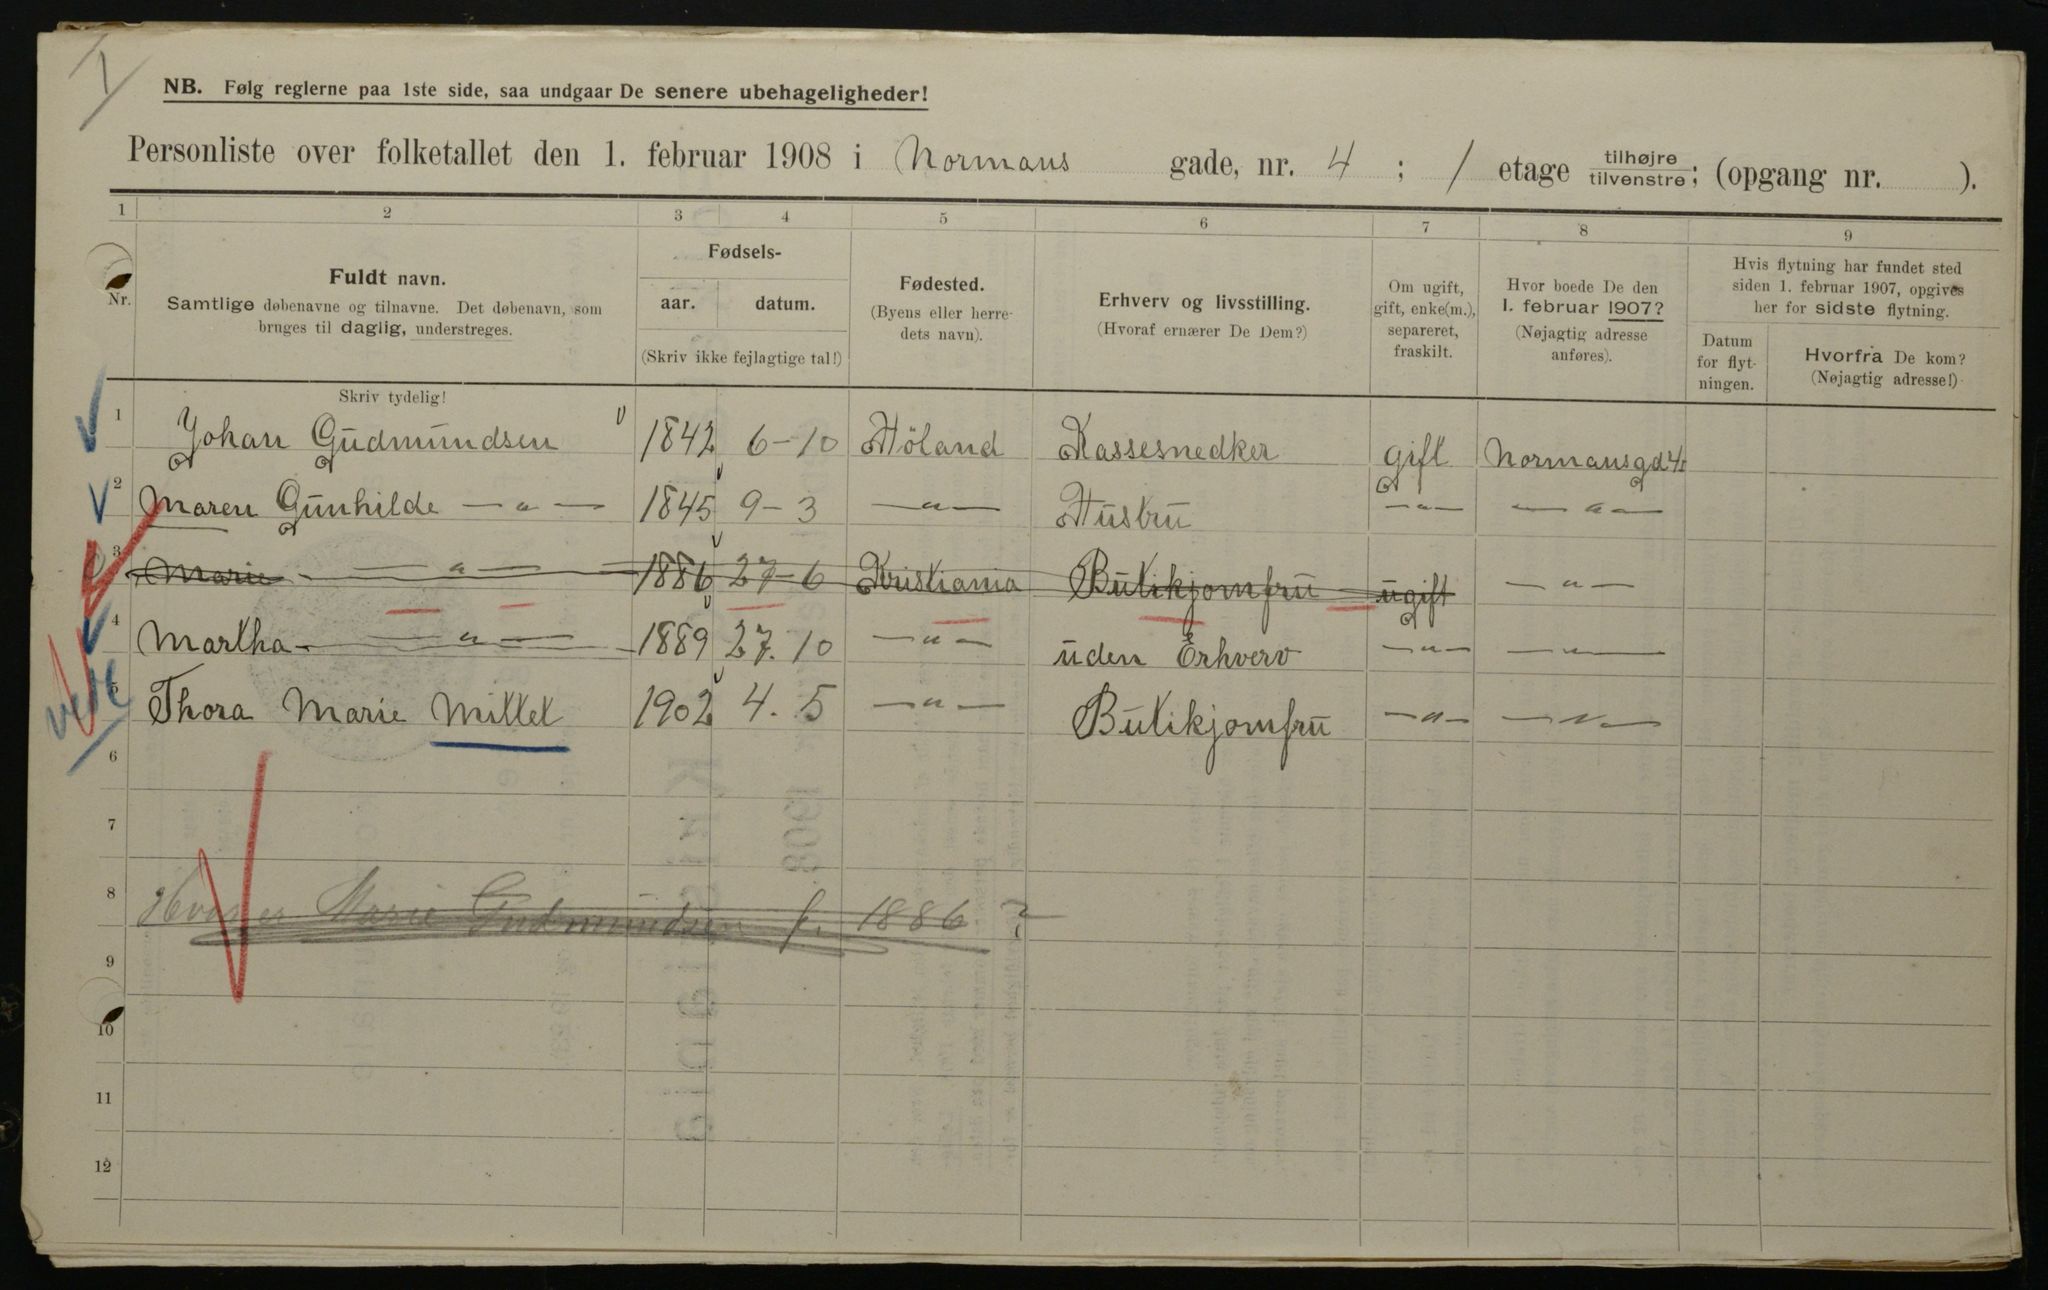 NB. Følg reglerne paa 1ste side, saa undgaar De senere ubehageligheder!
Personliste over folketallet den 1. februar 1908 i Normans gade, nr. 4 ; 1 etage tilhøjre/tilvenstre; (opgang nr. ).
1 2 3 4 5 6 7 8 9
Nr.
Fuldt navn.
Samtlige døbenavne og tilnavne. Det døbenavn, som
bruges til daglig, understreges.
Skriv tydelig!
Fødsels-
aar. datum.
(Skriv ikke fejlagtige tal!)
Fødested.
(Byens eller herre-
dets navn).
Erhverv og livsstilling.
(Hvoraf ernærer De Dem?)
Om ugift,
gift, enke(m.),
separeret,
fraskilt.
Hvor boede De den
1. februar 1907?
(Nøjagtig adresse
anføres).
Hvis flytning har fundet sted
siden 1. februar 1907, opgives
her for sidste flytning.
Datum
for flyt-
ningen.
Hvorfra De kom?
(Nøjagtig adresse!)
1 Johan Gudmundsen 1842 6-10 Höland Kassesnedker gift Normansgd 4
2 Maren Gunhilde — " — 1845 9-3 — " — Hustru — " — — " —
3 Marie — " — 1886 27-6 Kristiania Butikjomfru ugift — " —
4 Martha — " — 1889 27.10 — " — uden Erhverv — " — — " —
5 Thora Marie Mittet 1902 4.5 — " — Butikjomfru — " — — " —
6
7
8 Hvor er Marie Gudmundsen f. 1886 ?
9
10
11
12